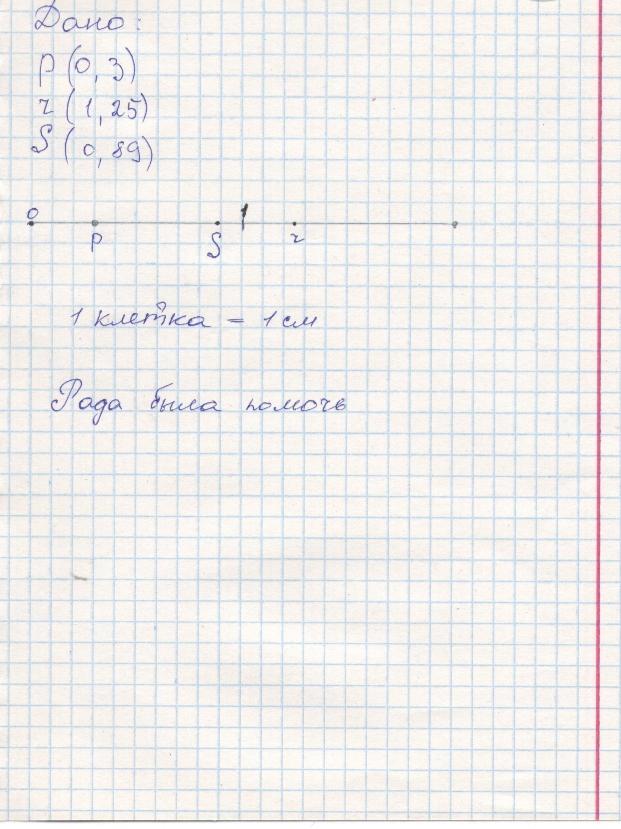 Дано:
P (0,3)
r (1,25)
S (0,89)
0 1
P S r
1 клетка = 1 см
Рада была помочь